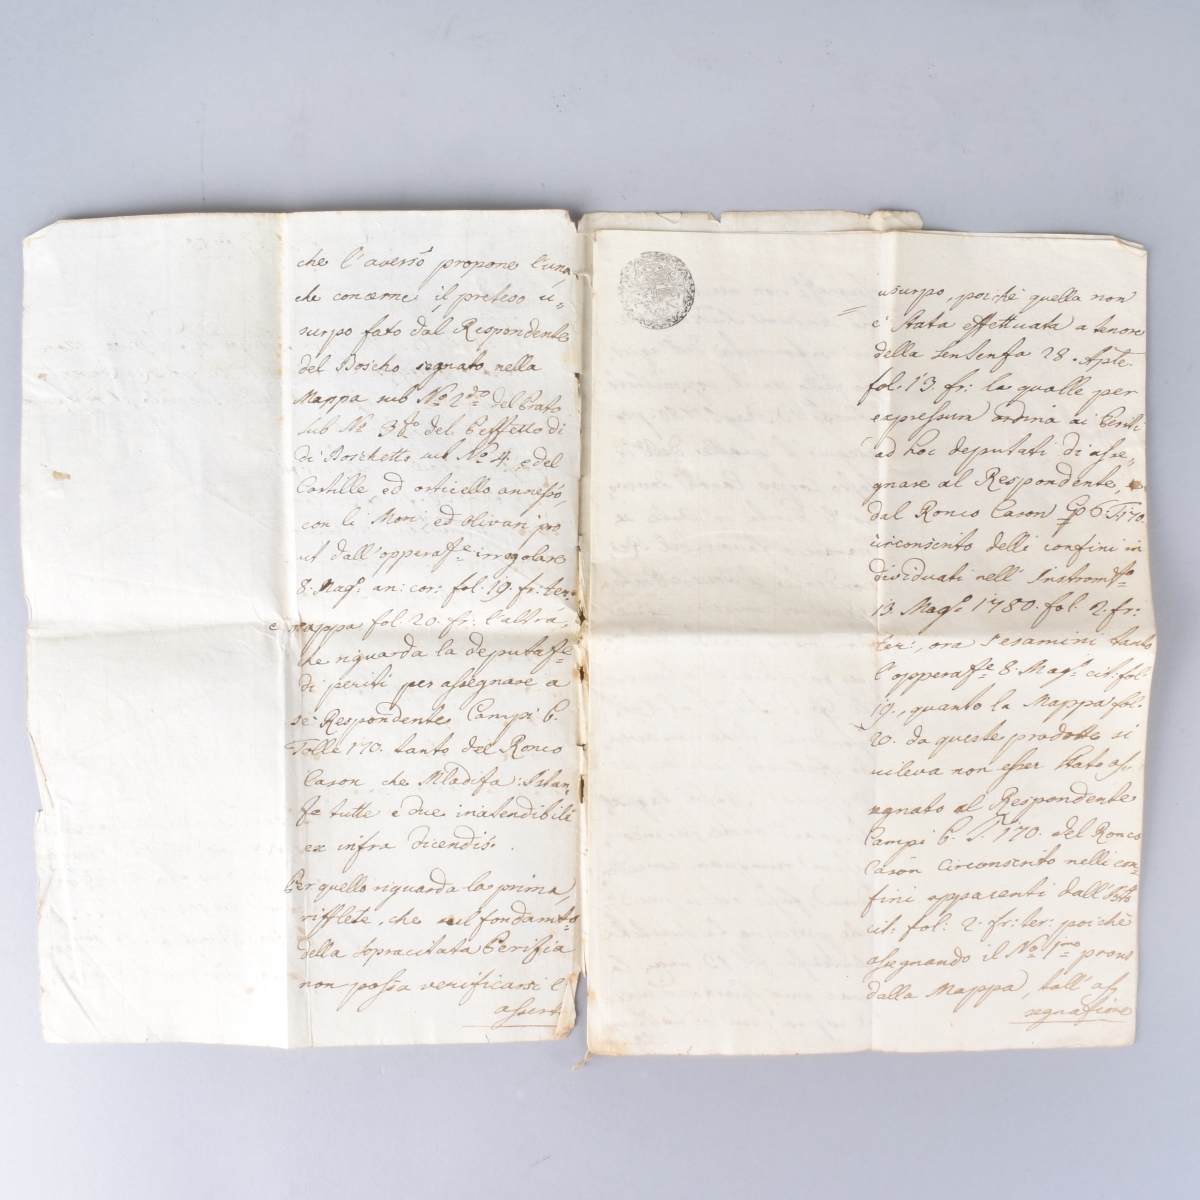 che l'averso propone l'una,
che concerne il preteso u„
surpo fato dal Respondente
del Boscho segnato nella
Mappa sub No. 2do del Prato
sub No. 3zo del Peffetto di
di Boschetto sub No. 4. e del
Cortille, ed orticello annesso,
con li Mori, ed olivari pro
ut dall'opperaße irregolare
8. Mago. an: cor: fol. 19. fr: ter:
e mappa fol. 20. fr: l'altra,
che riguarda la deputaße
di periti per assegnare a
sè Respondente Campi 6.
Tolle 170. tanto del Ronco
Cason, che Istan„
tutte e due inatendibili
ex infra dicendis.
Per quello riguarda la prima,
rifflete, che sul fondamto
della sopracitata Perizia
non possia verificarsi l'
assert
usurpo, poichè quella non
è stata effettuata a tenore
della Sensenza 28. Aple.
fol. 13. fr: la qualle per
expressum ordina ai Periti
ad hoc deputati di asse„
gnare al Respondente,
dal Ronco Cason Cp 6 T. 170.
circonscrito delli confini in
dividuati nell' Instromto
13. Mago. 1780. fol. 2. fr:
ter:, ora s'esamini tanto
l'opperaße 8. Mago. cit: fol.
19., quanto la Mappa fol.
20. da queste prodotte si
rileva non esser stato as„
segnato al Respondente
Campi 6. T. 170. del Ronco
Cason circonscrito nelli con„
fini apparenti dall'Istto
cit: fol: 2. fr: ter: poichè
assegnando il No. 1mo prout
dalla Mappa, tall' as
segnazione